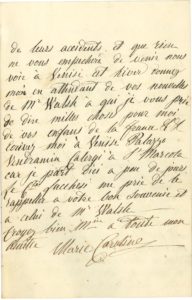 de leurs accidents, et que rien
ne vous empêchera de venir nous
voir à Venise cet hiver
moi en attendant de vos nouvelles
de Mr Walsh à qui je vous prie
de dire milles choses pour moi
de vos enfans de la
moi à Venise Palazzo
Vendramin Calergi à St Marcola
car je part d'ici à peu de jours
Lucchesi me prie de le
rappeler à votre bon souvenir et
à celui de Mr Walsh
Croyez bien à toute mon
amitié
Marie Caroline